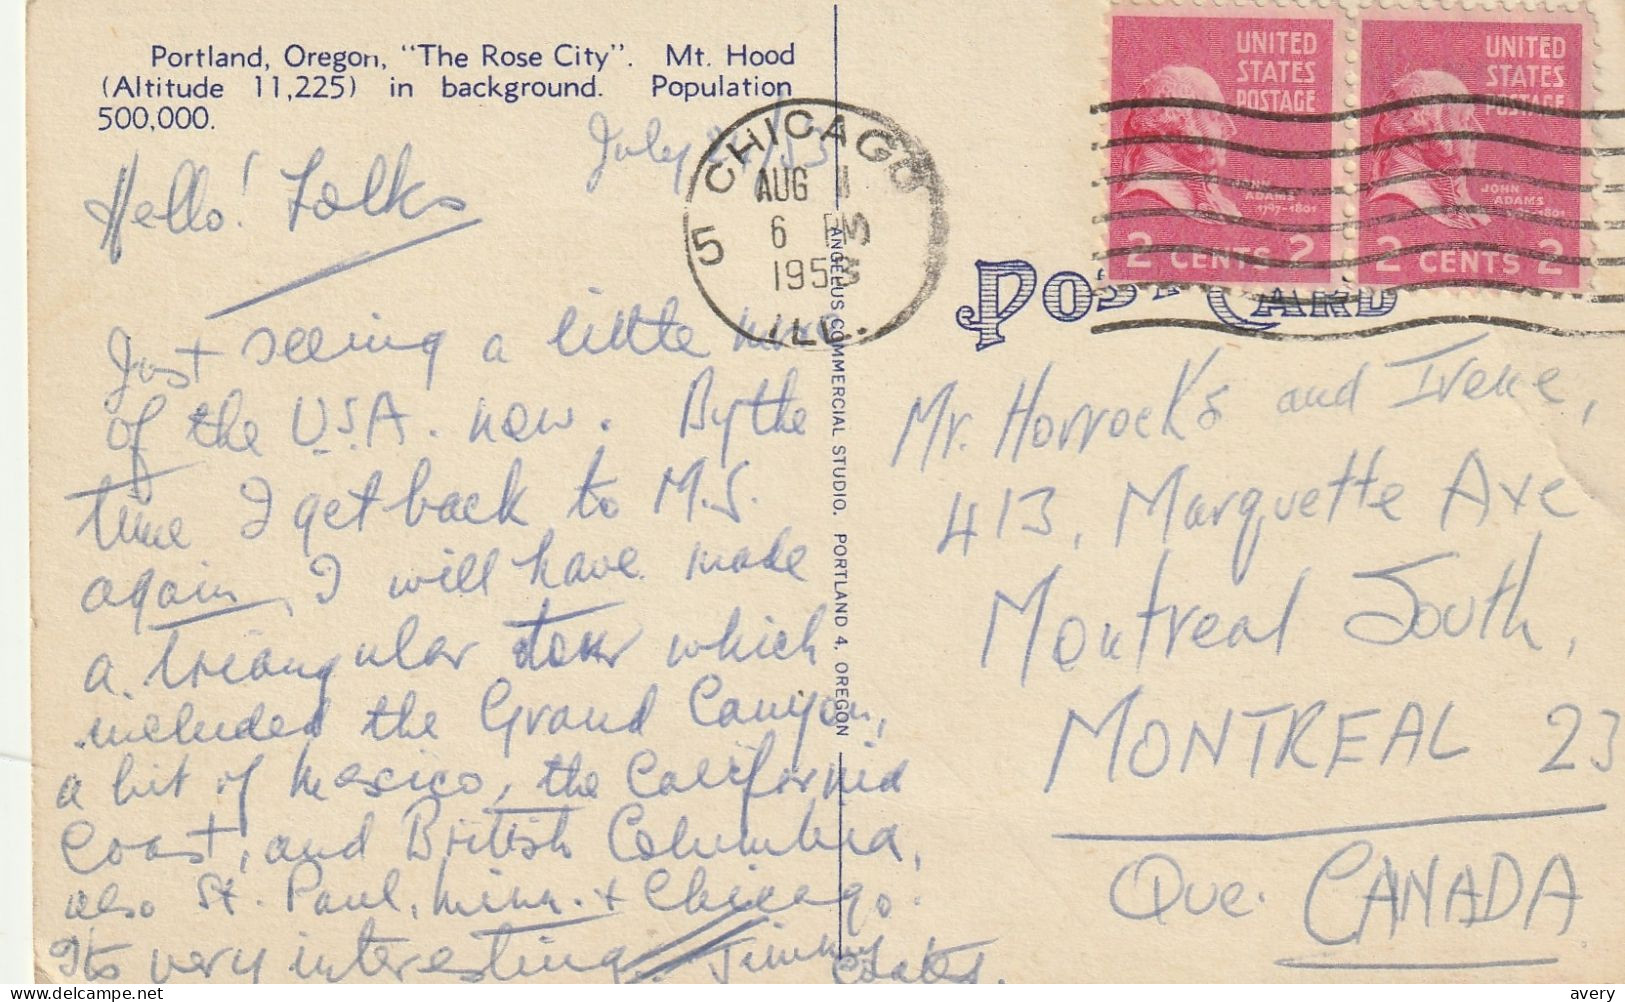 Portland, Oregon, "The Rose City". Mt. Hood
(Altitude 11,225) in background. Population
500,000.
July /53
Hello! Folks
Just seeing a little more
of the U.S.A. now. By the
time I get back to M.S.
again, I will have made
a triangular tour which
included the Grand Canyon,
a bit of Mexico, the California
Coast, and British Columbia,
also St. Paul, Minn. + Chicago.
Its very interesting. Jimmy Coates.
CHICAGO
AUG 1
6 PM
1953
5
ILL.
ANGELUS COMMERCIAL STUDIO, PORTLAND 4, OREGON
UNITED
STATES
POSTAGE
JOHN
ADAMS
1797-1801
2 CENTS 2
UNITED
STATES
POSTAGE
JOHN
ADAMS
1801
2 CENTS 2
POST CARD
Mr. Horrocks and Irene,
413, Marquette Ave
Montreal South,
MONTREAL 23
Que. CANADA
delcampe.net
avery